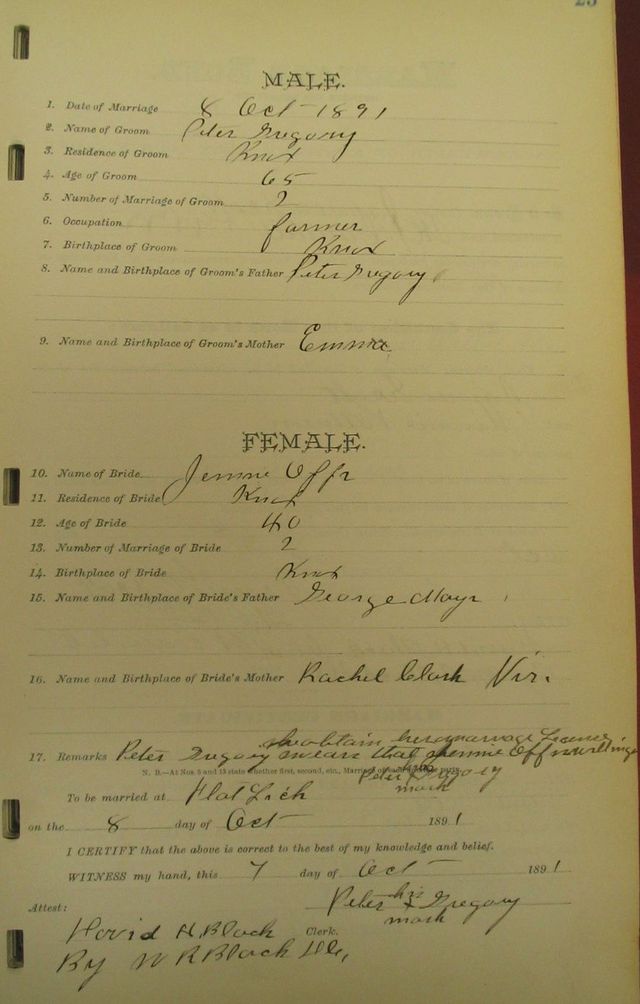 23
MALE.
1. Date of Marriage 8 Oct 1891
2. Name of Groom Peter Gregory
3. Residence of Groom Knox
4. Age of Groom 65
5. Number of Marriage of Groom 2
6. Occupation farmer
7. Birthplace of Groom Knox
8. Name and Birthplace of Groom's Father Peter Gregory
9. Name and Birthplace of Groom's Mother Emma
FEMALE.
10. Name of Bride Jennie
11. Residence of Bride Knox
12. Age of Bride 40
13. Number of Marriage of Bride 2
14. Birthplace of Bride Knox
15. Name and Birthplace of Bride's Father George Mays
16. Name and Birthplace of Bride's Mother Rachel Clark Vir.
obtain marriage License
17. Remarks Peter Gregory swears that Jennie is willing
N. B.—At Nos. 5 and 13 state whether first, second, etc., Marriage of each of the parties.
Peter Gregory
mark
To be married at Flat Lick
on the 8 day of Oct 1891
I CERTIFY that the above is correct to the best of my knowledge and belief.
WITNESS my hand, this 7 day of Oct 1891
his
Peter x Gregory
mark
Attest:
David H Black Clerk.
By W R Black